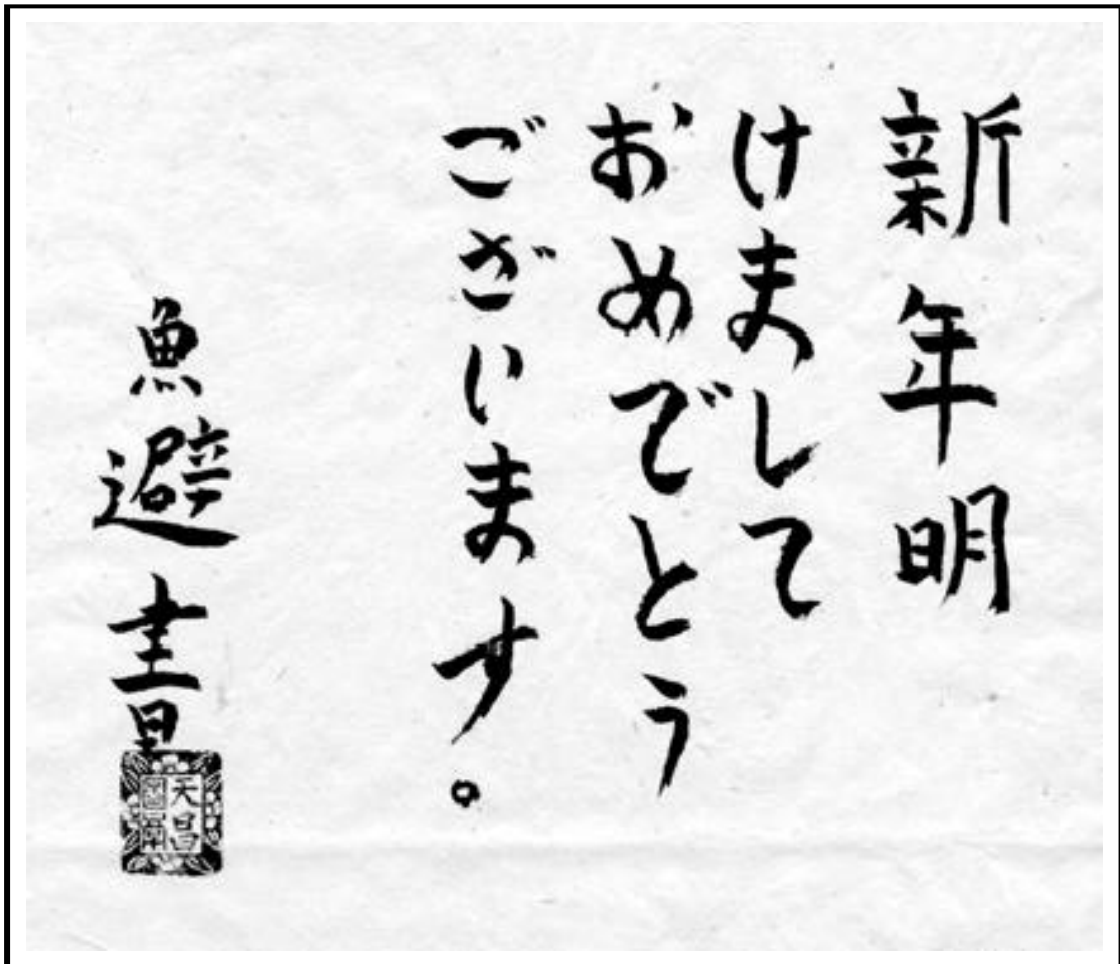 新年明
けまして
おめでとう
ございます。
魚避
天昌